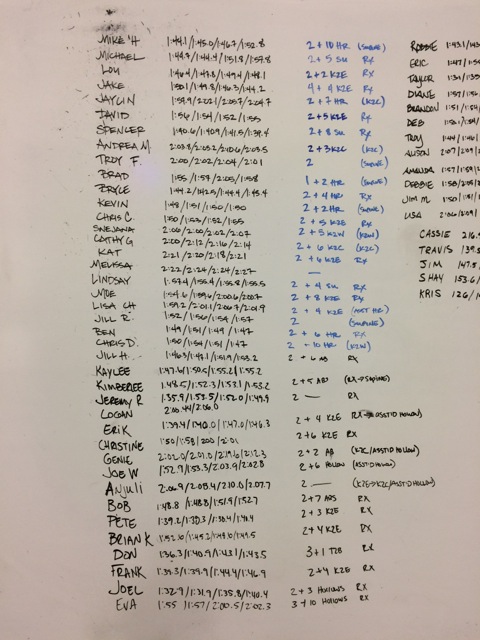 MIKE H 1:44.1/1:45.0/1:46.7/1:52.8 2 + 10 HR (SUPINE)
MICHAEL 2 + 5 SU RX
LOU 2 + 2 K2E RX
JAKE 4 + 4 K2E RX
JAYLIN 1:59.9/2:02.1/2:05.7/2:04.7 2 + 7 HR (K2C)
DAVID 1:56/1:54/1:52/1:55 2 + 5 K2E RX
SPENCER 1:40.6/1:40.9/1:41.5/1:39.4 2 + 8 SU RX
ANDREA M. 2:03.8/2:03.2/2:10.6/2:03.5 2 + 3 K2C (K2C)
TROY F. 2:00/2:02/2:04/2:01 2 (SUPINE)
BRAD 1:55/1:59/2:05/1:58 1 + 2 HR (SUPINE)
BRYCE 2 + 4 HR RX
KEVIN 1:48/1:51/1:50/1:50 2 + 2 HR (SUPINE)
CHRIS C. 1:50/1:53/1:52/1:55 2 + 5 K2E RX
SNEJANA 2:00/2:00/2:02/2:07 2 + 5 K2W (K2W)
CATHY G 2:00/2:12/2:16/2:14 2 + 6 K2C (K2C)
KAT 2:21/2:20/2:18/2:21 2 + 6 K2E RX
MELISSA 2:22/2:24/2:24/2:27 —
LINDSAY 1:57.4/1:55.4/1:55.8/1:55.5 2 + 4 SU RX
MOE 2 + 8 K2E RX
LISA CH 1:59.2/2:01.1/2:06.7/2:01.9 2 + 4 K2E
JILL R. 1:52/1:56/1:54/1:57 2 (SUPINE)
BEN 1:49/1:51/1:49/1:47 2 + 6 HR RX
CHRIS D. 1:50/1:54/1:51/1:47 2 - 10 HR (K2W)
JILL H. 1:46.3/1:47.1/1:51.9/1:53.2 2 + 6 AB RX
KAYLEE 1:47.6/1:50.5/1:55.2/1:55.2
KIMBERLEE 1:48.5/1:52.3/1:53.1/1:53.2 2 + 5 ABS
JEREMY R 1:35.9/1:53.5/1:52.0/1:49.9 2 — RX
LOGAN 2:00.44/2:06.0
ERIK 1:39.4/1:40.0/1:47.0/1:46.3 2 + 4 K2E
CHRISTINE 1:50/1:58/200/2:01 2 + 6 K2E RX
GENIE 2:02.0/2:01.0/2:19.6/2:12.3 2 + 2 AB (K2C/ASST'D HOLLOW)
JOE W 1:52.9/1:53.3/2:03.9/2:02.8 2 + 6 HOLLOW (ASST'D HOLLOW)
ANJULI 2:06.9/2:08.4/2:10.0/2:07.7 2 — (K2E→K2C/ASST'D HOLLOW)
BOB 1:48.8/1:48.8/1:51.9/1:52.7 2 + 7 ABS RX
PETE 2 + 3 K2E RX
BRIAN K 2 + 4 K2E RX
DAN 1:36.3/1:40.9/1:43.1/1:43.5 3 + 1 T2B RX
FRANK 1:39.3/1:39.9/1:44.4/1:46.9 2 + 4 K2E RX
JOEL 1:32.9/1:31.9/1:35.8/1:40.4 2 + 3 HOLLOWS RX
EVA 1:55/1:57/2:00.5/2:02.3 3 + 10 HOLLOWS RX
ROBBIE 1:43.1/
ERIC 1:47/
TAYLOR
DIANE 1:57/
BRANDON 1:51/
DEB
TROY 1:44/
ALISON 2:07/
AMANDA 1:57/
DEBBIE 1:58/
JIM M 1:50/
LISA 2:06/
CASSIE
TRAVIS
JIM
SHAY 153.6/
KRIS